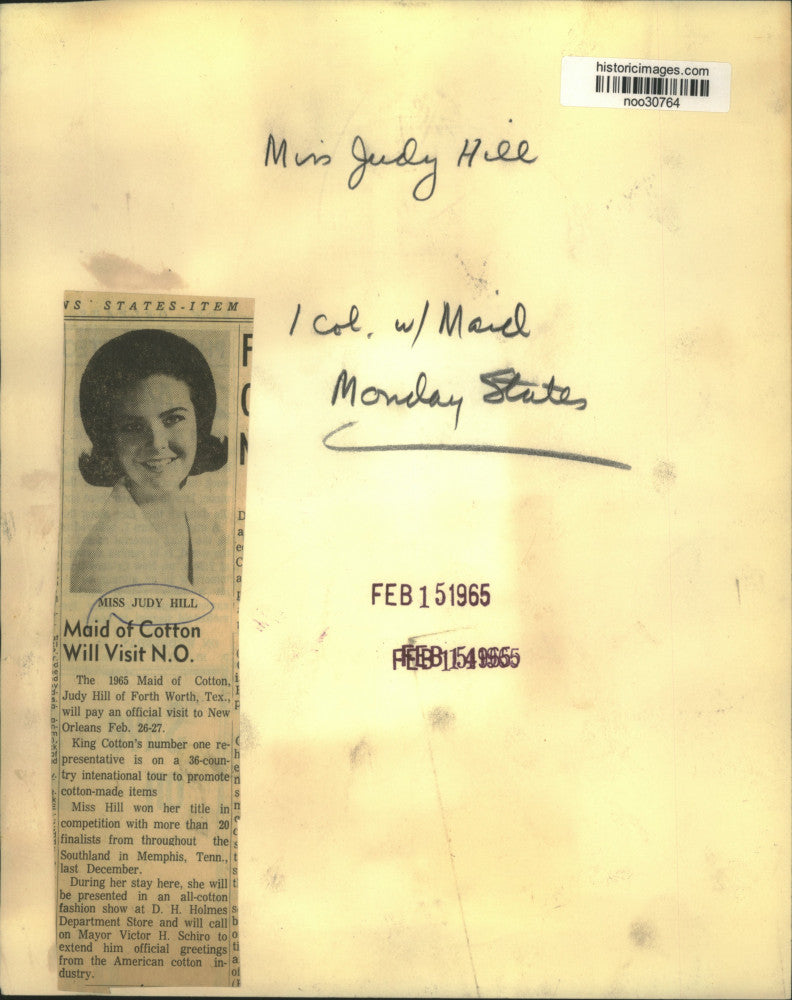 historicimages.com
noo30764
Miss Judy Hill
1 col. w/ Maid
Monday States
FEB 15 1965
FEB 15 1965
NS STATES-ITEM
MISS JUDY HILL
Maid of Cotton
Will Visit N.O.
The 1965 Maid of Cotton,
Judy Hill of Forth Worth, Tex.,
will pay an official visit to New
Orleans Feb. 26-27.
King Cotton's number one re-
presentative is on a 36-coun-
try intenational tour to promote
cotton-made items
Miss Hill won her title in
competition with more than 20
finalists from throughout the
Southland in Memphis, Tenn.,
last December.
During her stay here, she will
be presented in an all-cotton
fashion show at D. H. Holmes
Department Store and will call
on Mayor Victor H. Schiro to
extend him official greetings
from the American cotton in-
dustry.